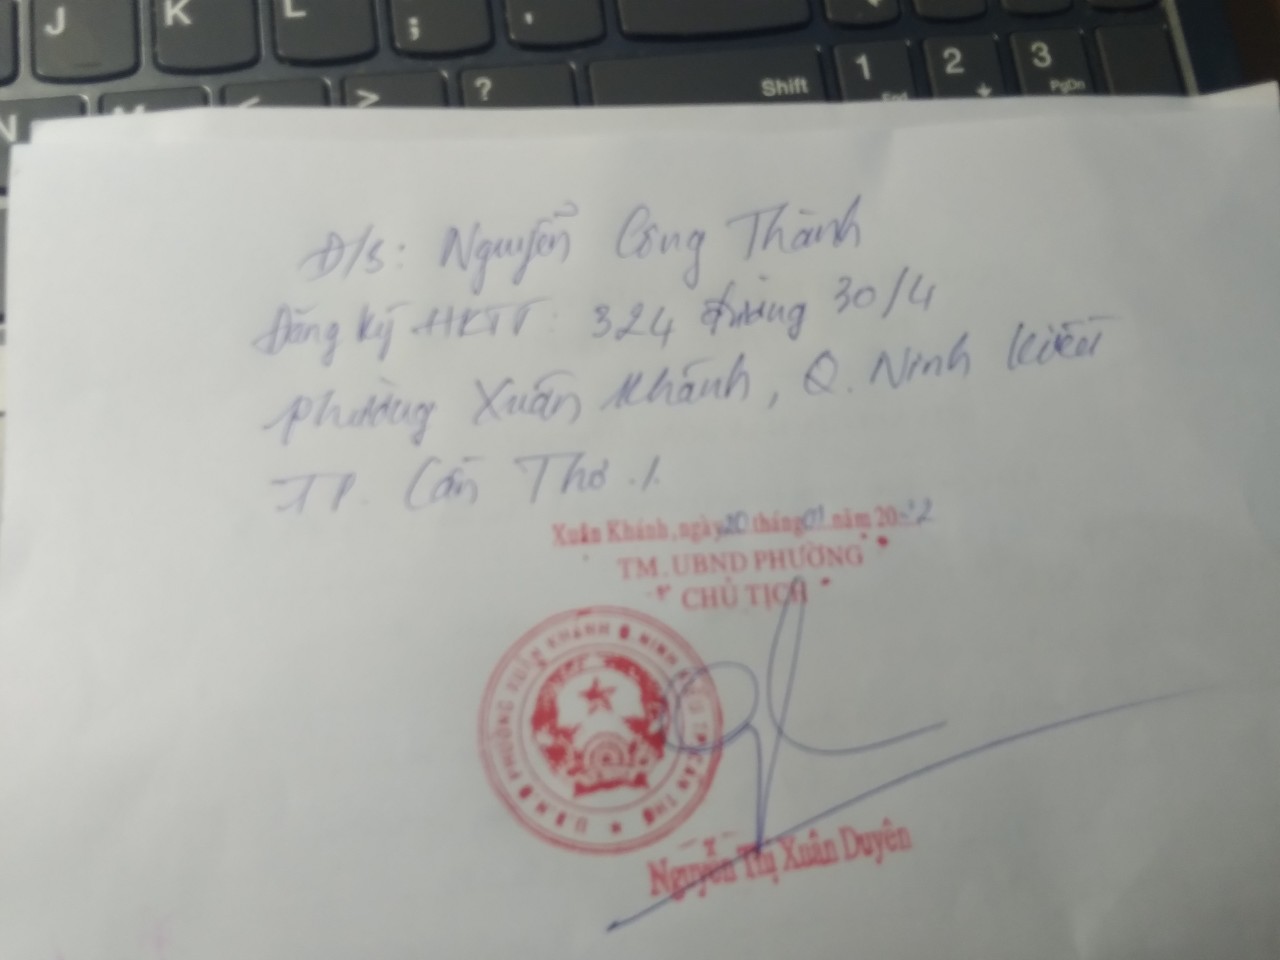 J K L ; '
N < > ? Shift 1 End 2 3 PgDn
Đ/s: Nguyễn Công Thành
Đăng ký HKTT: 324 đường 30/4
phường Xuân Khánh, Q. Ninh Kiều
TP. Cần Thơ ./.
Xuân Khánh, ngày 20 tháng 01 năm 20 22
TM. UBND PHƯỜNG
CHỦ TỊCH
U.B.N.D PHƯỜNG XUÂN KHÁNH Q. NINH KIỀU TP CẦN THƠ
Nguyễn Thị Xuân Duyên